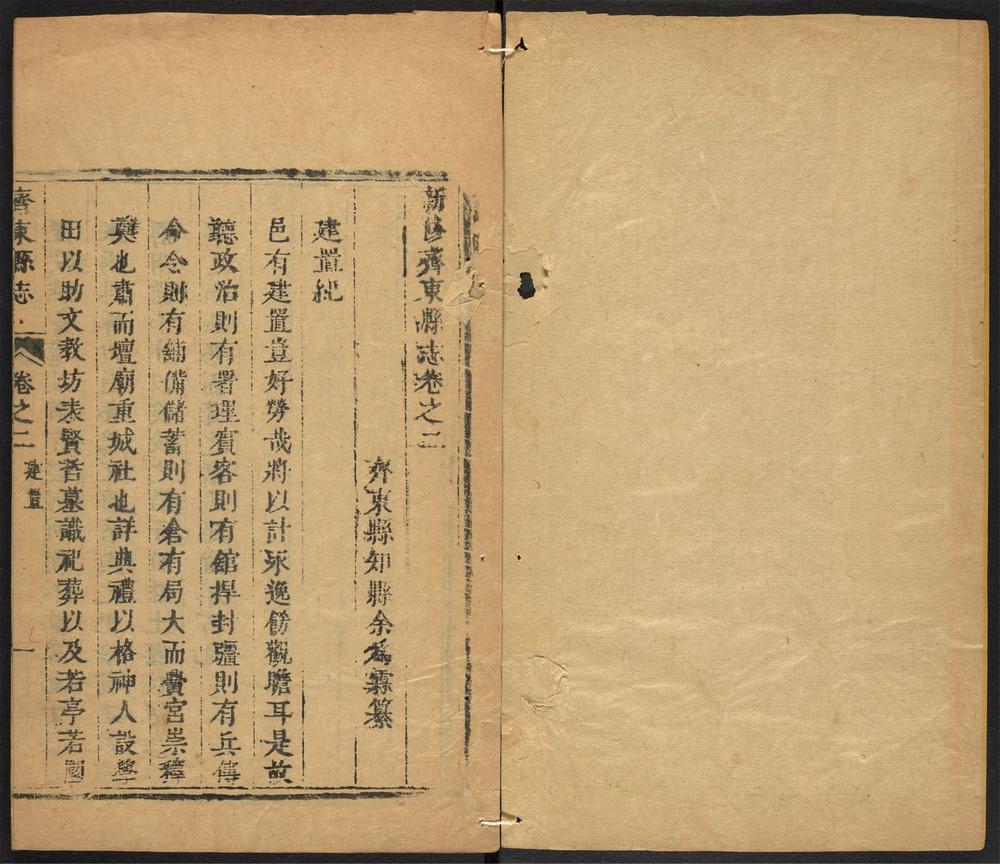 新修齊東縣志卷之二
齊東縣知縣余為霖纂
建置紀
邑有建置豈好勞哉將以計永逸飭觀瞻耳是故
聽政治則有署理賓客則有館捍封疆則有兵傳
命令則有鋪備儲蓄則有倉有局大而黌宮崇釋
奠也肅而壇廟重城社也詳典禮以格神人設學
田以助文教坊表賢哲墓識祀葬以及若亭若園
齊東縣志 卷之二 建置 一